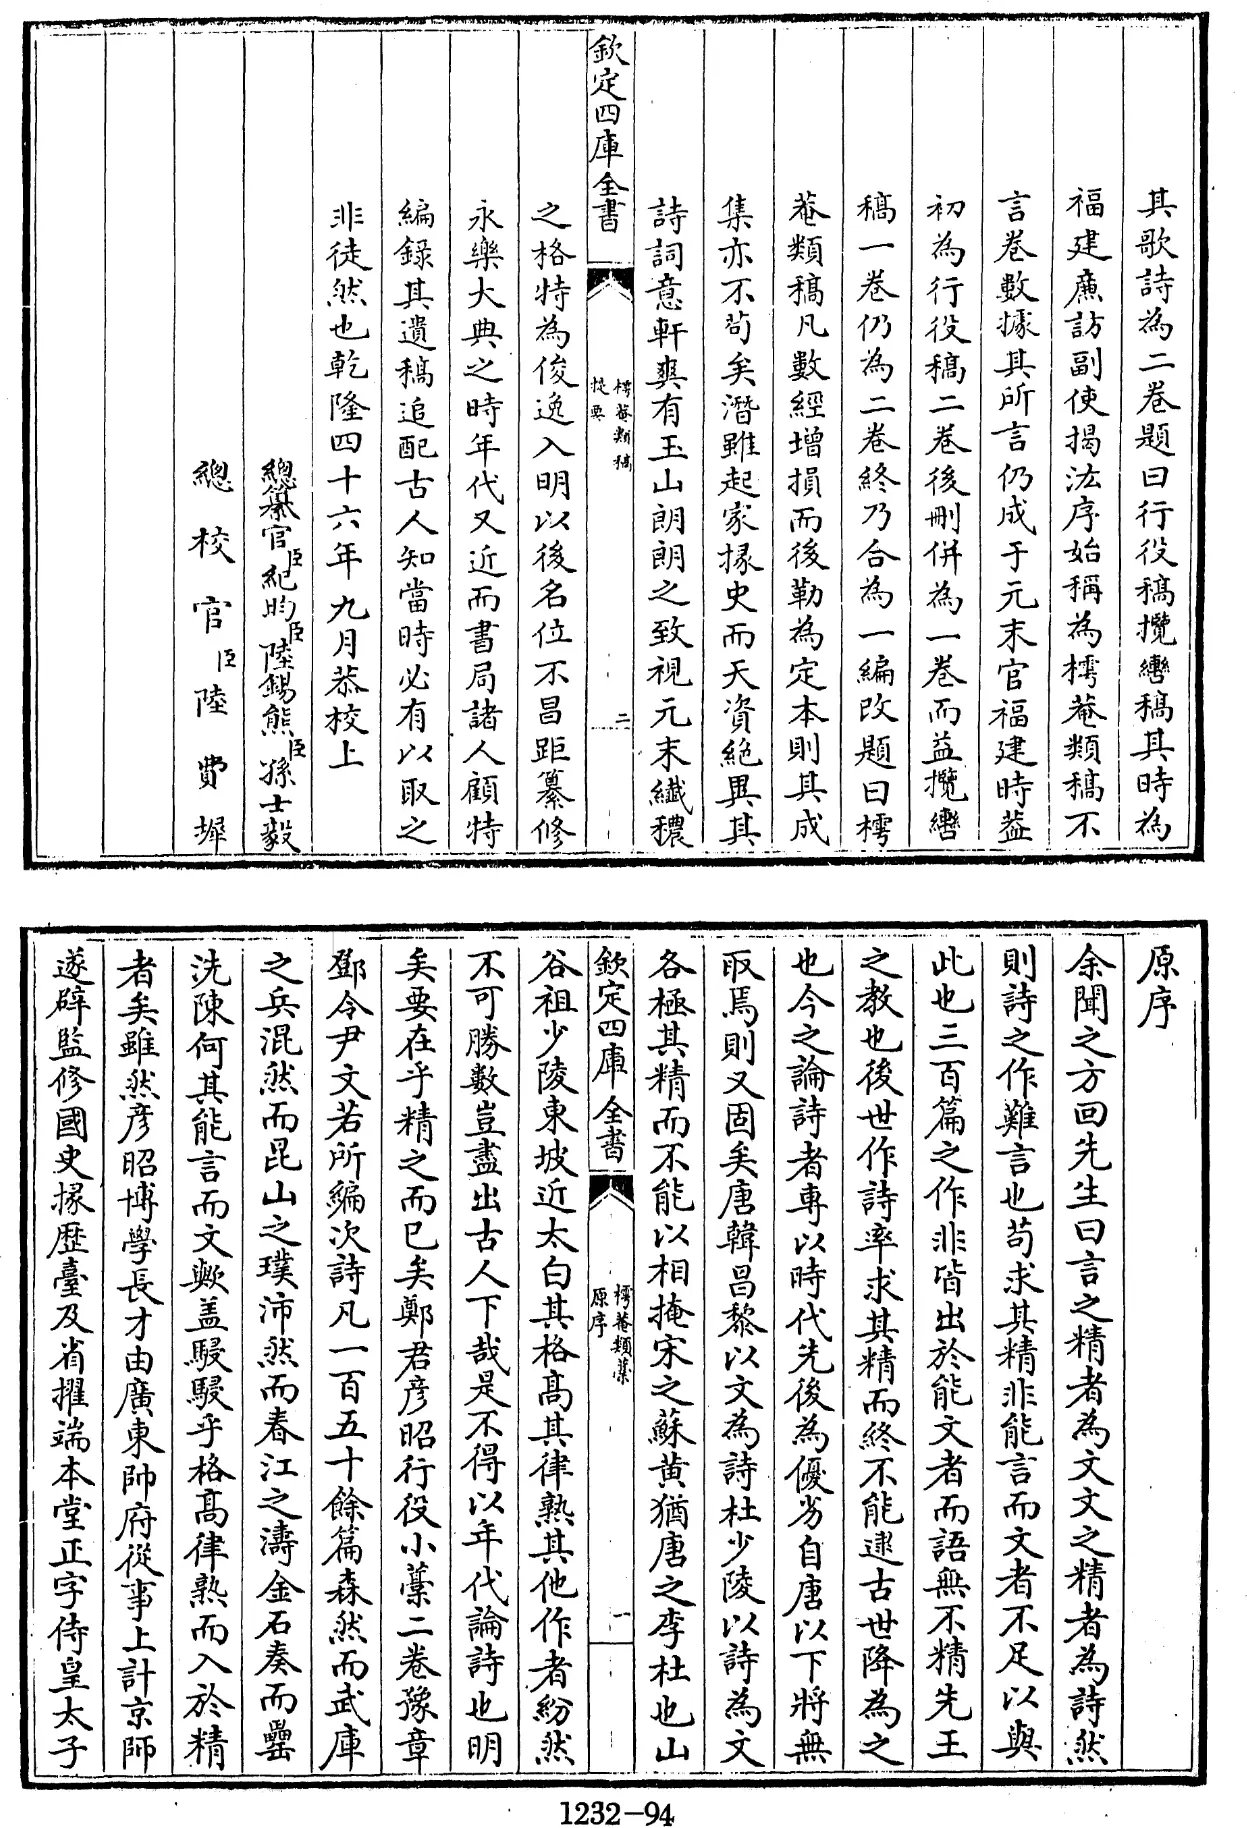 其歌詩為二卷題曰行役稿攬轡稿其時為
福建廉訪副使揭汯序始稱為樗菴類稿不
言卷數據其所言仍成于元末官福建時葢
初為行役稿二卷後刪併為一卷而益攬轡
稿一卷仍為二卷終乃合為一編改題曰樗
菴類稿凡數經增損而後勒為定本則其成
集亦不茍矣潛雖起家掾史而天資絶異其
詩詞意軒爽有玉山朗朗之致視元末纖穠
欽定四庫全書
樗菴類稿
提要
二
之格特為俊逸入明以後名位不昌距纂修
永樂大典之時年代又近而書局諸人顧特
編録其遺稿追配古人知當時必有以取之
非徒然也乾隆四十六年九月恭校上
總纂官臣紀昀臣陸錫熊臣孫士毅
總校官臣陸費墀
原序
余聞之方回先生曰言之精者為文文之精者為詩然
則詩之作難言也苟求其精非能言而文者不足以與
此也三百篇之作非皆出於能文者而語無不精先王
之教也後世作詩率求其精而終不能逮古世降為之
也今之論詩者專以時代先後為優劣自唐以下將無
取焉則又固矣唐韓昌黎以文為詩杜少陵以詩為文
各極其精而不能以相掩宋之蘇黄猶唐之李杜也山
欽定四庫全書
樗菴類藁
原序
一
谷祖少陵東坡近太白其格髙其律熟其他作者紛然
不可勝數豈盡出古人下哉是不得以年代論詩也明
矣要在乎精之而已矣鄭君彦昭行役小藁二卷豫章
鄧令尹文若所編次詩凡一百五十餘篇森然而武庫
之兵混然而昆山之璞沛然而春江之濤金石奏而罍
洗陳何其能言而文歟盖駸駸乎格髙律熟而入於精
者矣雖然彦昭博學長才由廣東帥府從事上計京師
遂辟監修國史掾歴臺及省擢端本堂正字侍皇太子
1232-94